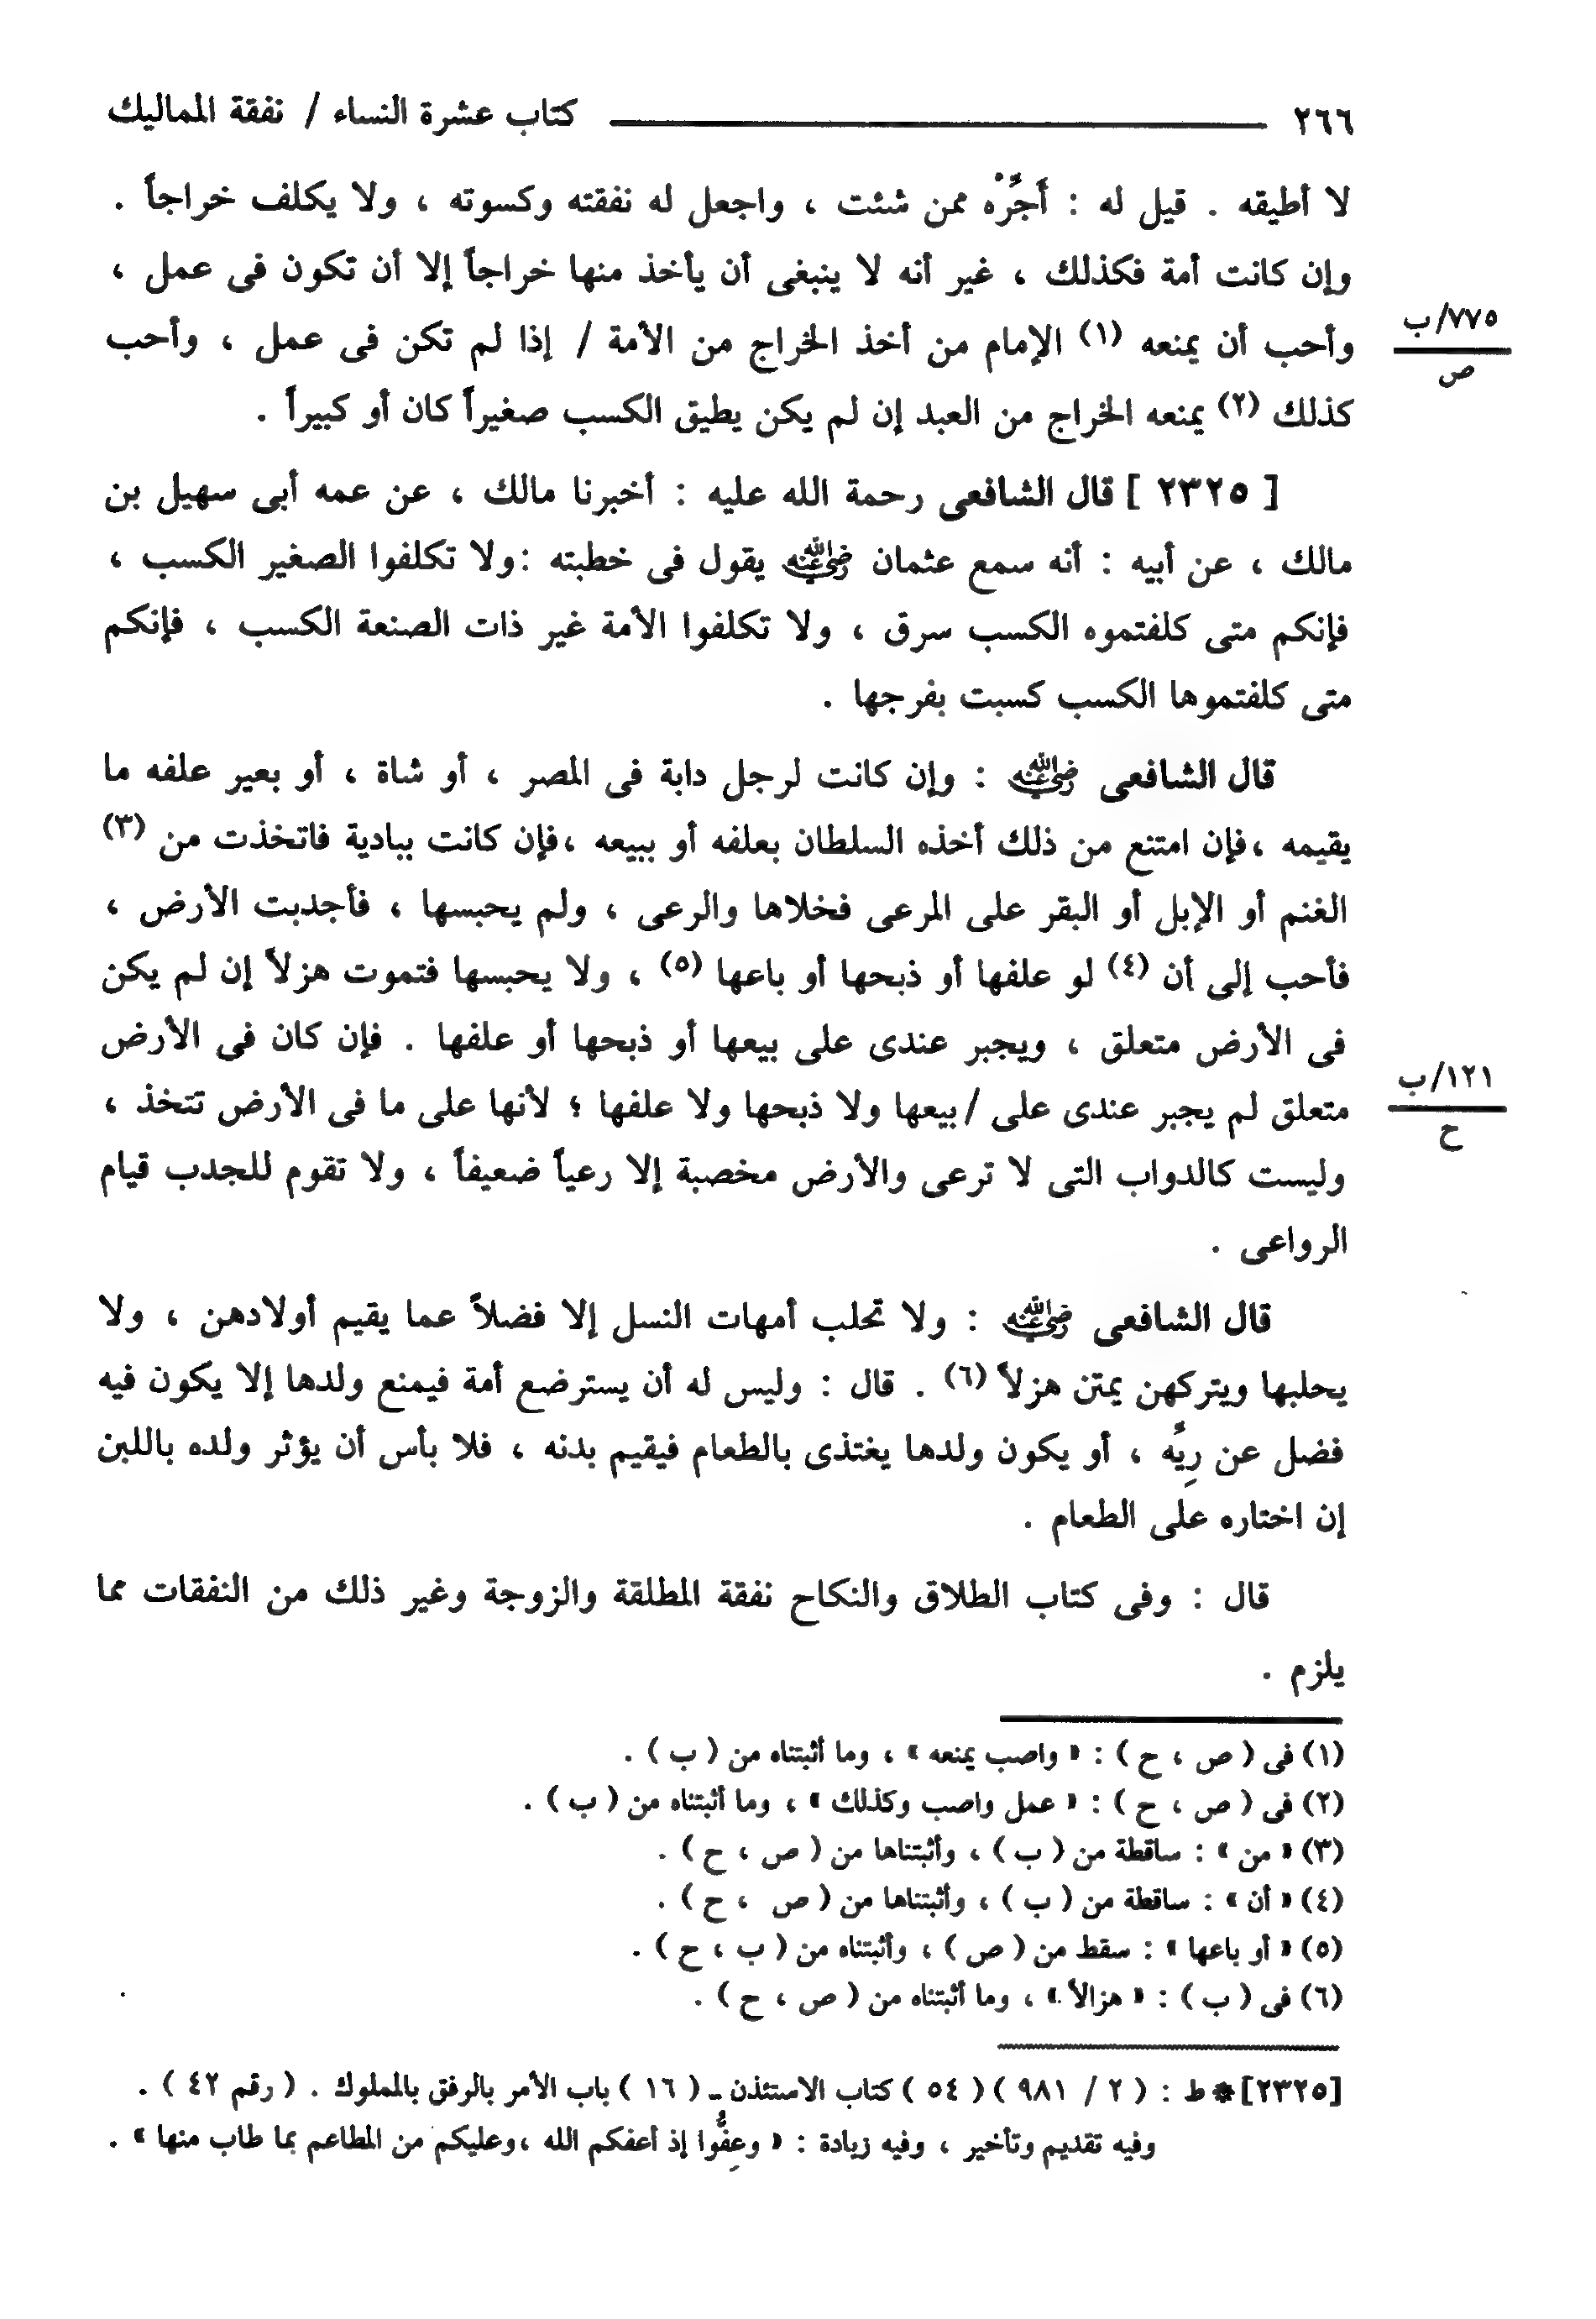 ٢٦٦ كتاب عشرة النساء / نفقة المماليك
لا أطيقه . قيل له : أَجِّرْه ممن شئت ، واجعل له نفقته وكسوته ، ولا يكلف خراجاً .
وإن كانت أمة فكذلك ، غير أنه لا ينبغى أن يأخذ منها خراجاً إلا أن تكون فى عمل ،
وأحب أن يمنعه (١) الإمام من أخذ الخراج من الأمة / إذا لم تكن فى عمل ، وأحب
٧٧٥/ب
ص
كذلك (٢) يمنعه الخراج من العبد إن لم يكن يطيق الكسب صغيراً كان أو كبيراً .
[ ٢٣٢٥ ] قال الشافعى رحمة الله عليه : أخبرنا مالك ، عن عمه أبى سهيل بن
مالك ، عن أبيه : أنه سمع عثمان رضي الله عنه يقول فى خطبته :ولا تكلفوا الصغير الكسب ،
فإنكم متى كلفتموه الكسب سرق ، ولا تكلفوا الأمة غير ذات الصنعة الكسب ، فإنكم
متى كلفتموها الكسب كسبت بفرجها .
قال الشافعى رضي الله عنه : وإن كانت لرجل دابة فى المصر ، أو شاة ، أو بعير علفه ما
يقيمه ،فإن امتنع من ذلك أخذه السلطان بعلفه أو ببيعه ،فإن كانت ببادية فاتخذت من (٣)
الغنم أو الإبل أو البقر على المرعى فخلاها والرعى ، ولم يحبسها ، فأجدبت الأرض ،
فأحب إلى أن (٤) لو علفها أو ذبحها أو باعها (٥) ، ولا يحبسها فتموت هزلاً إن لم يكن
فى الأرض متعلق ، ويجبر عندى على بيعها أو ذبحها أو علفها . فإن كان فى الأرض
متعلق لم يجبر عندى على /بيعها ولا ذبحها ولا علفها ؛ لأنها على ما فى الأرض تتخذ ،
١٢١/ب
ح
وليست كالدواب التى لا ترعى والأرض مخصبة إلا رعياً ضعيفاً ، ولا تقوم للجدب قيام
الرواعى .
قال الشافعى رضي الله عنه : ولا تحلب أمهات النسل إلا فضلاً عما يقيم أولادهن ، ولا
يحلبها ويتركهن يمتن هزلاً (٦) . قال : وليس له أن يسترضع أمة فيمنع ولدها إلا يكون فيه
فضل عن رِيِّه ، أو يكون ولدها يغتذى بالطعام فيقيم بدنه ، فلا بأس أن يؤثر ولده باللبن
إن اختاره على الطعام .
قال : وفى كتاب الطلاق والنكاح نفقة المطلقة والزوجة وغير ذلك من النفقات مما
يلزم .
(١) فى ( ص ، ح ) : « واصب يمنعه » ، وما أثبتناه من ( ب ) .
(٢) فى ( ص ، ح ) : « عمل واصب وكذلك » ، وما أثبتناه من ( ب ) .
(٣) « من » : ساقطة من ( ب ) ، وأثبتناها من ( ص ، ح ) .
(٤) « أن » : ساقطة من ( ب ) ، وأثبتناها من ( ص ، ح ) .
(٥) « أو باعها » : سقط من ( ص ) ، وأثبتناه من ( ب ، ح ) .
(٦) فى ( ب ) : « هزالاً » ، وما أثبتناه من ( ص ، ح ) .
[٢٣٢٥]* ط : ( ٢ / ٩٨١ ) ( ٥٤ ) كتاب الاستئذن ـ ( ١٦ ) باب الأمر بالرفق بالمملوك . ( رقم ٤٢ ) .
وفيه تقديم وتأخير ، وفيه زيادة : « وعِفُّوا إذ أعفكم الله ،وعليكم من المطاعم بما طاب منها » .